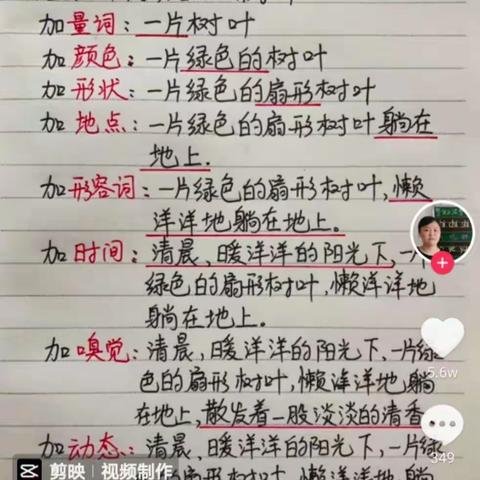 加量词：一片树叶
加颜色：一片绿色的树叶
加形状：一片绿色的扇形树叶
加地点：一片绿色的扇形树叶躺在
地上.
加形容词：一片绿色的扇形树叶,懒
洋洋地躺在地上。
加时间：清晨,暖洋洋的阳光下,一
绿色的扇形树叶,懒洋洋地
躺在地上。
加嗅觉：清晨,暖洋洋的阳光下,一片绿
色的扇形树叶,懒洋洋地躺
在地上,散发着一股淡淡的清香
加动态：清晨、暖洋洋的阳光下,一片绿
的扇形树叶,懒洋洋地躺
5.6w
349
剪映 视频制作